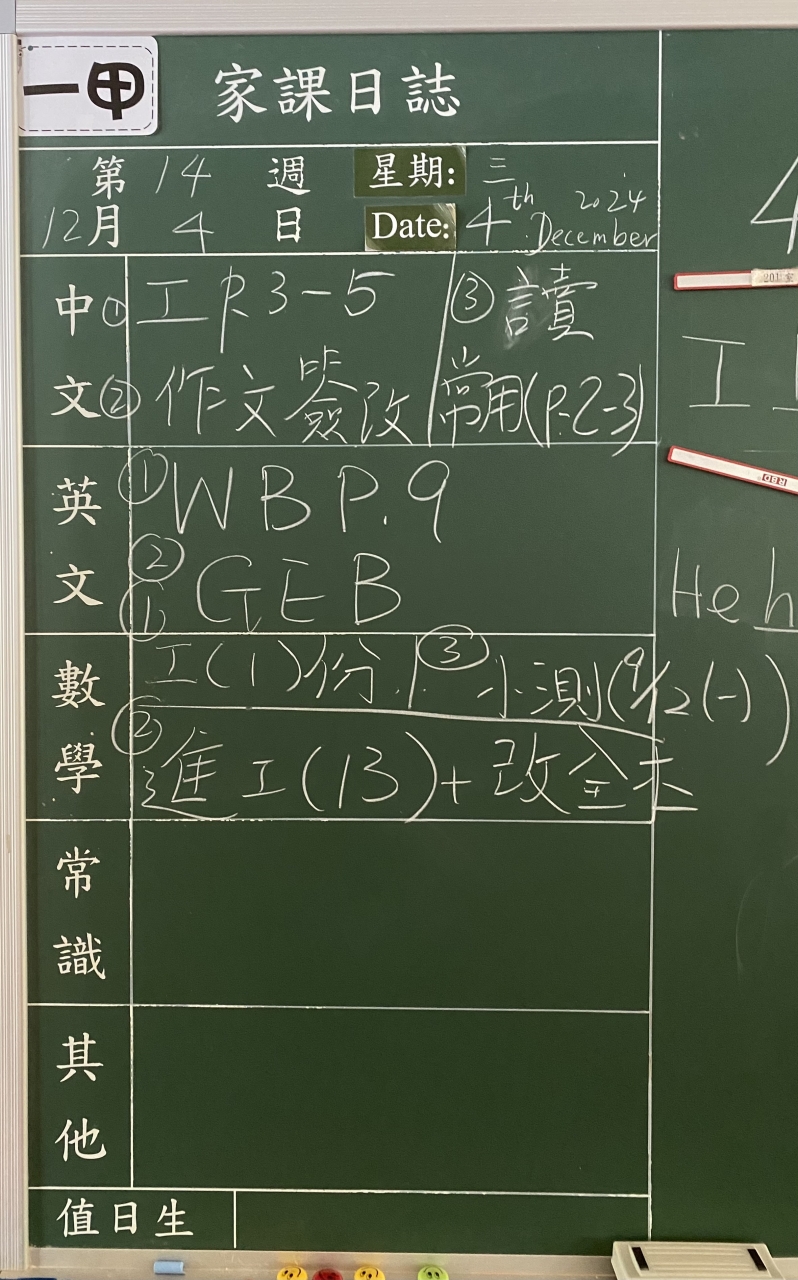 一甲 家課日誌
第 14 週 星期: 三
12月 4 日 Date: 4th December 2024
中文 ① 工 P.3-5 ③ 讀
② 作文簽改 常用(P.2-3)
英文 ① WB P.9
②
① GEB
數學 工(1)份 ③ 小測(9/12(一))
② 進工(13)+改全未
常識
其他
值日生
4
工
He h